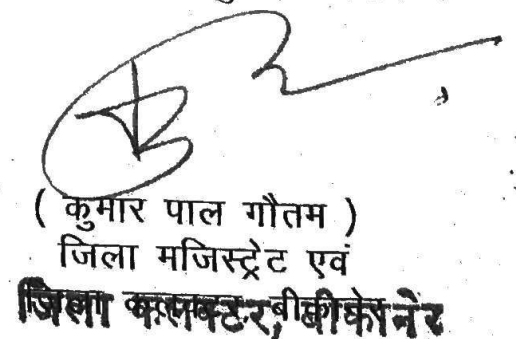 ( कुमार पाल गौतम )
जिला मजिस्ट्रेट एवं
जिला कलक्टर, बीकानेर